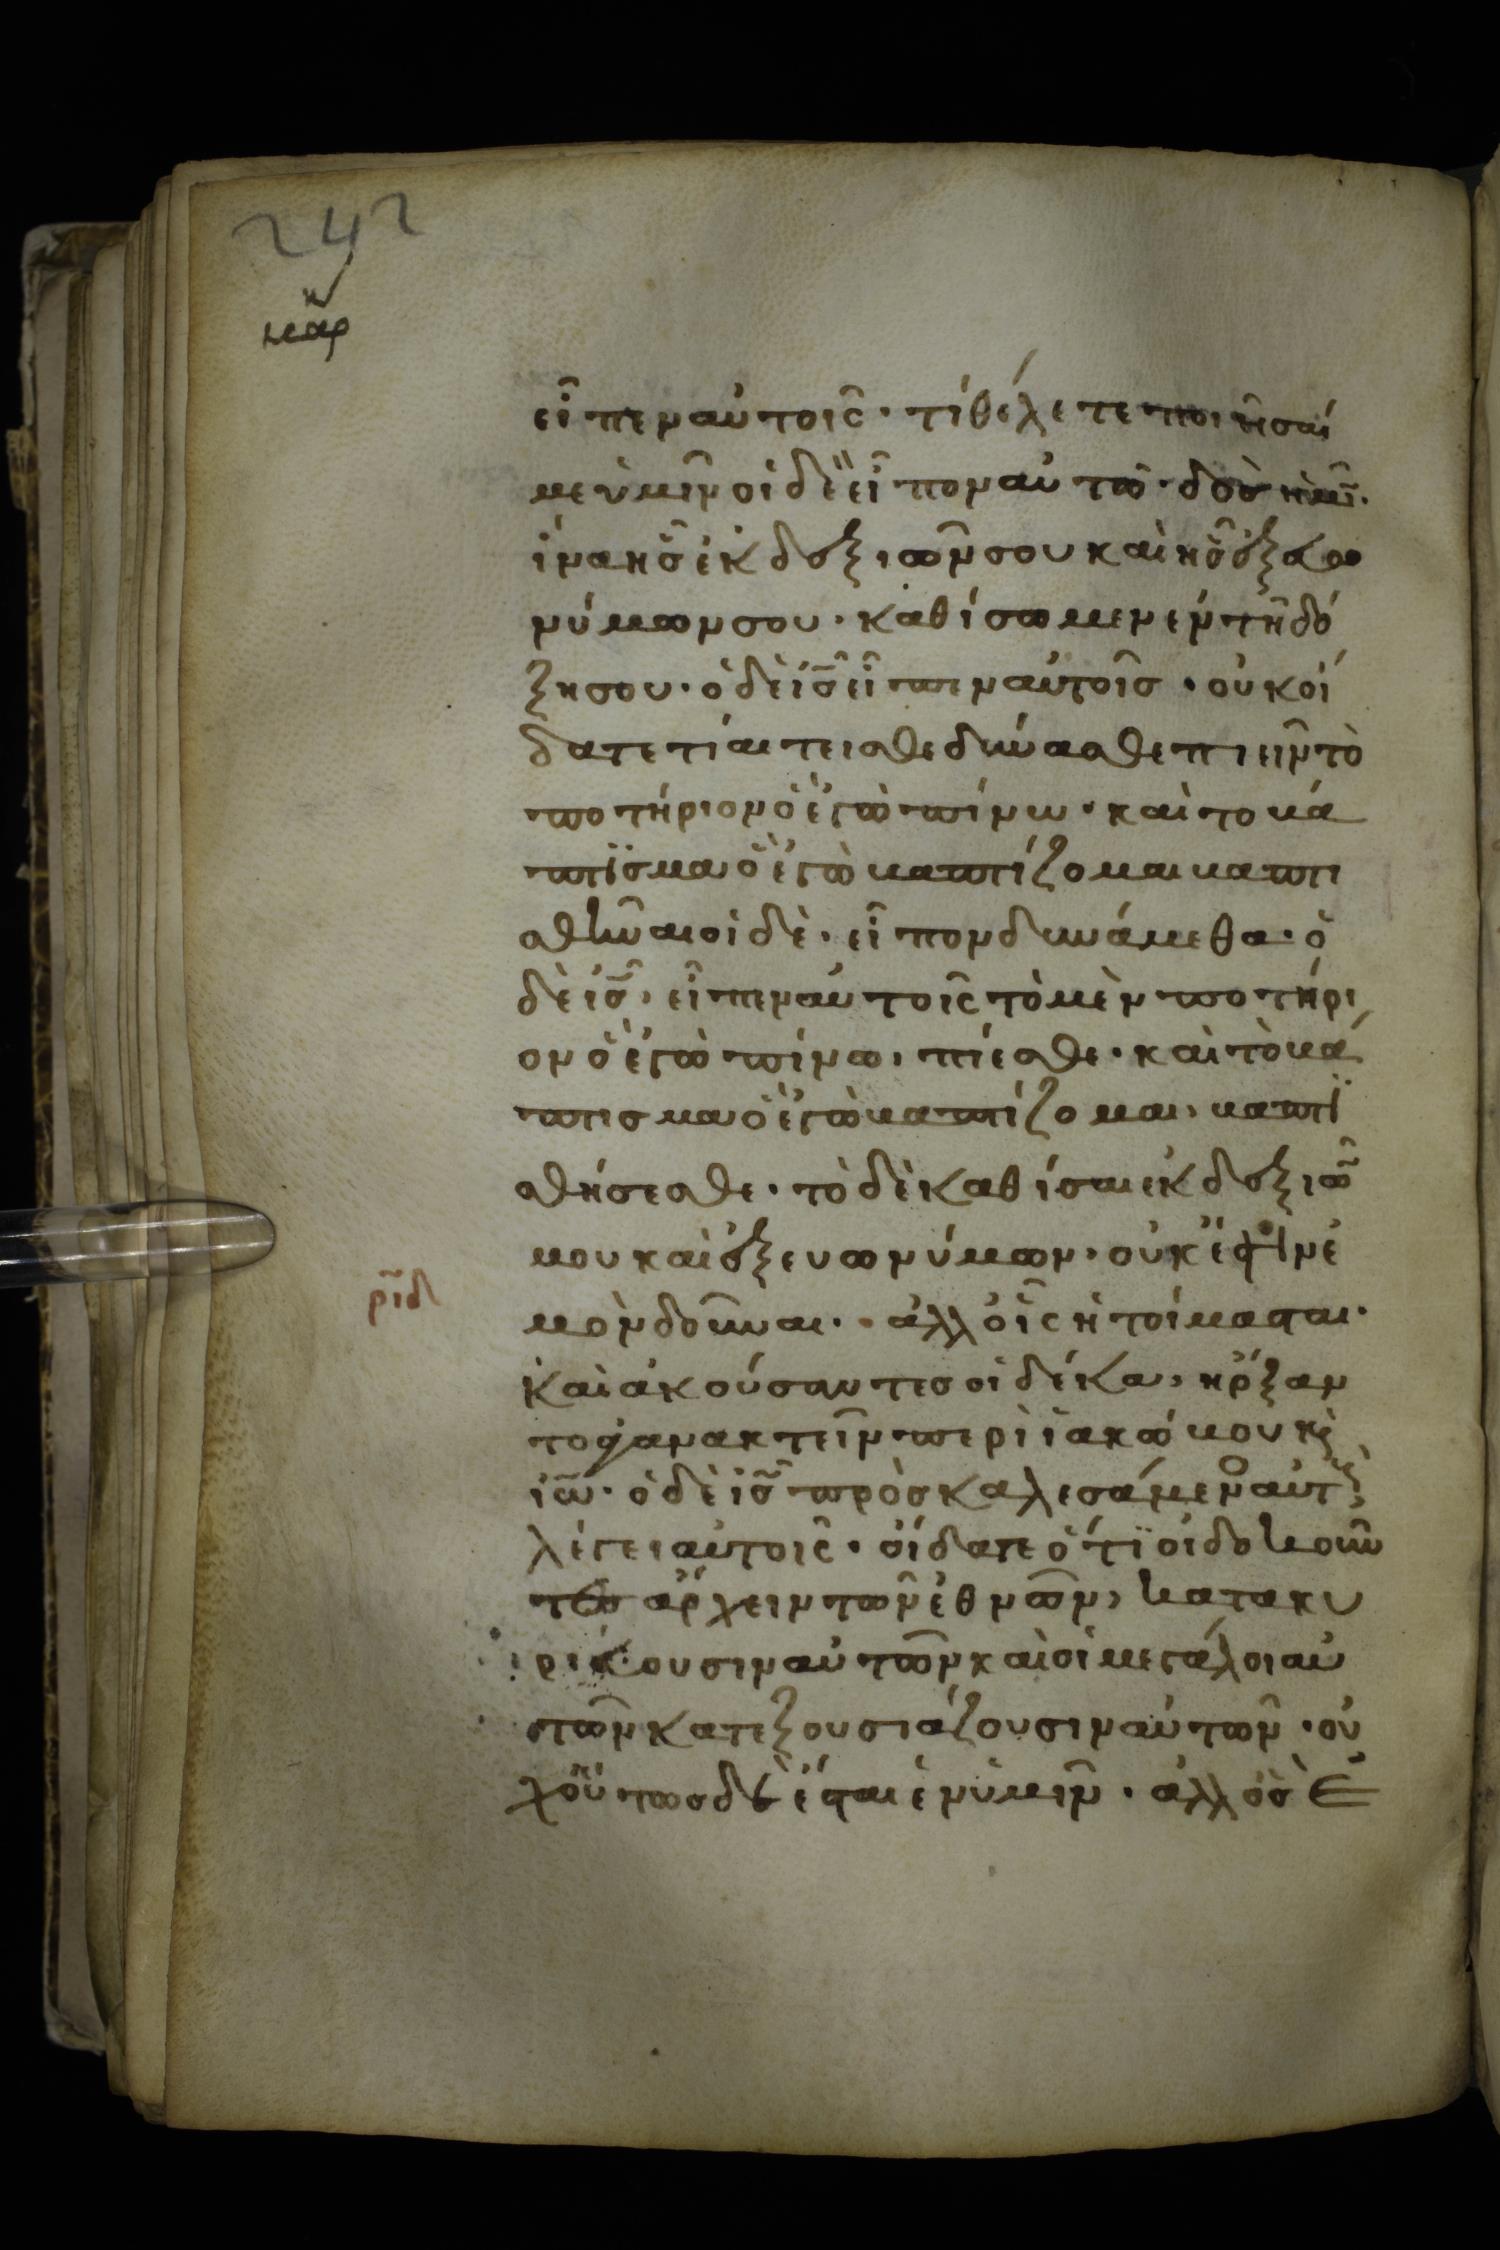 242
μαρ
εἶπεν αὐτοῖς· τί θέλετε ποιῆσαί
με ὑμῖν οἱ δὲ εἶπον αὐτῶ· δὸς ἡμῖν·
ἵνα εἷς ἐκ δεξιῶν σου καὶ εἷς ἐξ εὐω
νύμων σου· καθίσωμεν ἐν τῆ δό
ξη σου· ὁ δὲ ἰς εἶπεν αὐτοῖς· οὐκ οἴ
δατε τί αιτεισθε δύνασθε πιεῖν τὸ
ποτήριον ὃ ἐγὼ πίνω· καὶ το βά
πτϊσμα ὃ ἐγὼ βαπτίζομαι βαπτι
σθῆναι οἱ δὲ· εἶπον δυνάμεθα· ὁ
δὲ ἰς, εἶπεν αὐτοῖς τὸ μὲν ποτήρι
ον ὃ ἐγὼ πίνω, πίεσθε· καὶ τὸ βά
πτισμα ὃ ἐγὼ βαπτίζομαι, βαπτϊ
σθήσεσθε· τὸ δὲ καθίσαι ἐκ δεξιῶν
μου καὶ ἐξ ευωνύμων, οὐκ ἔστιν ἐ
μὸν δοῦναι· ἀλλ οἷς ἡτοίμασται·
ριδ
καὶ ἀκούσαντες οἱ δέκα, ἤρξαν
το ἀγανακτεῖν περὶ ἰακώβου κ
ἰω· ὁ δὲ ἰς προσκαλεσάμενος αὐτοὺς
λέγει αὐτοῖς· οἴδατε ὅτϊ οἱ δοκοῦν
τες ἄρχειν τῶν ἐθνῶν, κατακυ
ριεύουσιν αὐτῶν καὶ οἱ μεγάλοι αὐ
τῶν κατεξουσιάζουσιν αὐτῶν· οὐ
χ οὕτως δὲ ἔσται ἐν ὑμῖν· ἀλλ ὃς ἐ